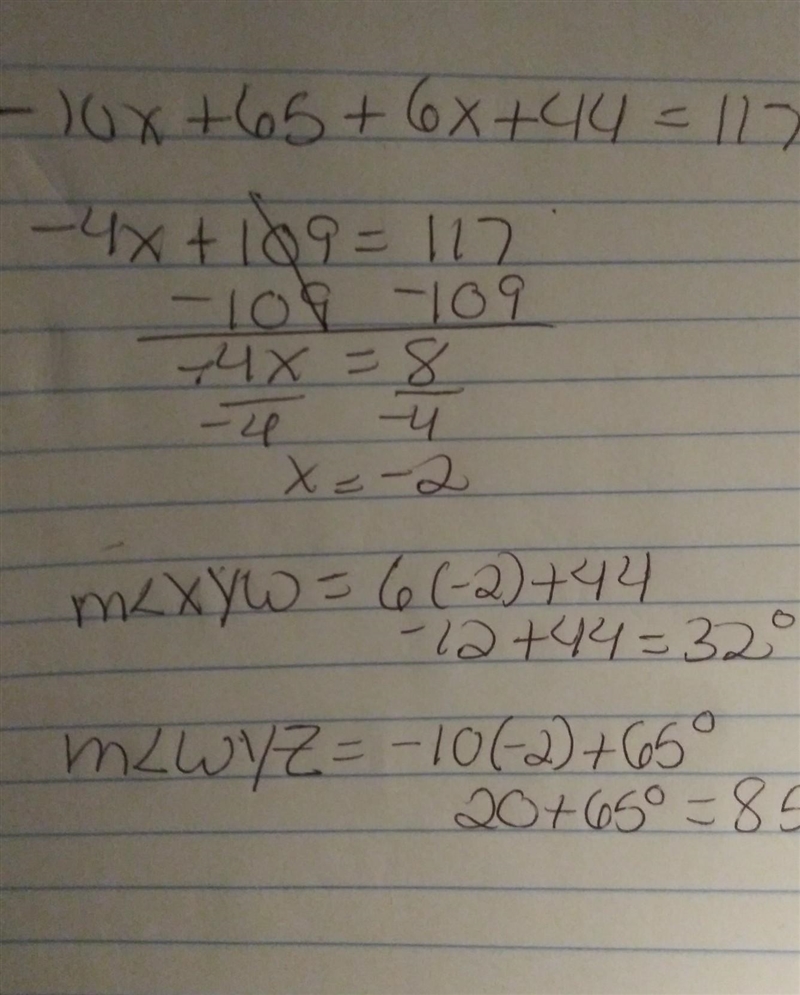 -10x + 65 + 6x + 44 = 117
-4x + 109 = 117
-109 -109
-4x = 8
-4 -4
x = -2
m<XYW = 6(-2) + 44
-12 + 44 = 32°
m<WYZ = -10(-2) + 65°
20 + 65° = 85